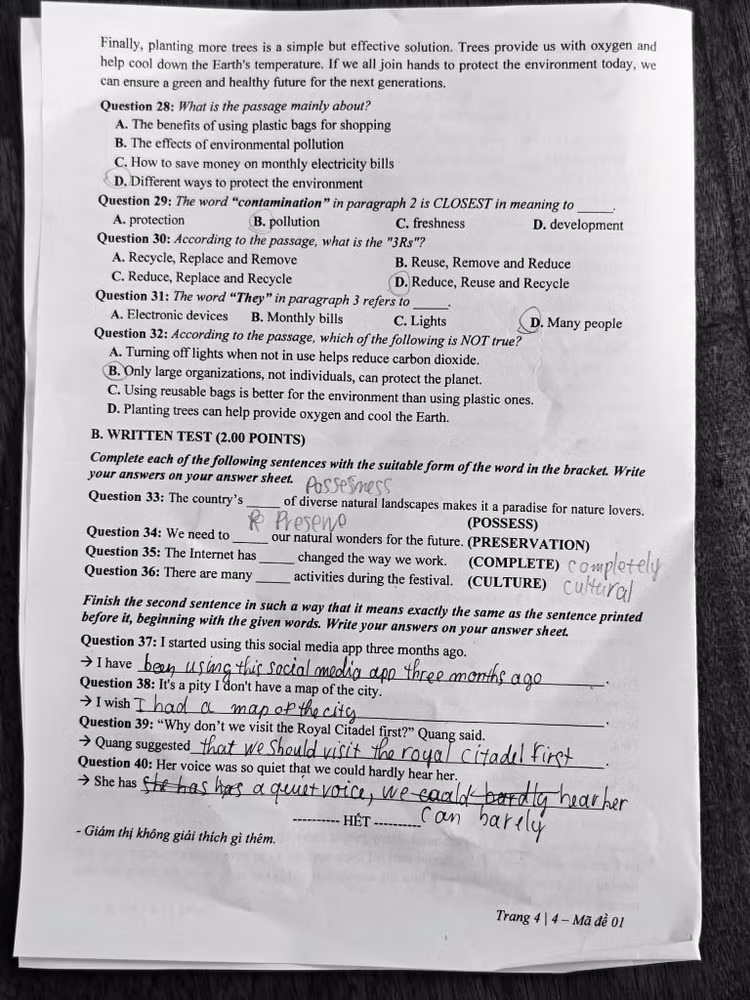 Finally, planting more trees is a simple but effective solution. Trees provide us with oxygen and
help cool down the Earth's temperature. If we all join hands to protect the environment today, we
can ensure a green and healthy future for the next generations.
Question 28: What is the passage mainly about?
A. The benefits of using plastic bags for shopping
B. The effects of environmental pollution
C. How to save money on monthly electricity bills
D. Different ways to protect the environment
Question 29: The word “contamination” in paragraph 2 is CLOSEST in meaning to _____.
A. protection B. pollution C. freshness D. development
Question 30: According to the passage, what is the "3Rs"?
A. Recycle, Replace and Remove B. Reuse, Remove and Reduce
C. Reduce, Replace and Recycle D. Reduce, Reuse and Recycle
Question 31: The word “They” in paragraph 3 refers to _____.
A. Electronic devices B. Monthly bills C. Lights D. Many people
Question 32: According to the passage, which of the following is NOT true?
A. Turning off lights when not in use helps reduce carbon dioxide.
B. Only large organizations, not individuals, can protect the planet.
C. Using reusable bags is better for the environment than using plastic ones.
D. Planting trees can help provide oxygen and cool the Earth.
B. WRITTEN TEST (2.00 POINTS)
Complete each of the following sentences with the suitable form of the word in the bracket. Write
your answers on your answer sheet.
Possesness
Question 33: The country's _____ of diverse natural landscapes makes it a paradise for nature lovers.
(POSSESS)
Preserve
Question 34: We need to _____ our natural wonders for the future. (PRESERVATION)
Question 35: The Internet has _____ changed the way we work. (COMPLETE) completely
Question 36: There are many _____ activities during the festival. (CULTURE) cultural
Finish the second sentence in such a way that it means exactly the same as the sentence printed
before it, beginning with the given words. Write your answers on your answer sheet.
Question 37: I started using this social media app three months ago.
→ I have been using this social media app three months ago.
Question 38: It's a pity I don't have a map of the city.
→ I wish I had a map of the city.
Question 39: “Why don't we visit the Royal Citadel first?” Quang said.
→ Quang suggested that we should visit the royal citadel first.
Question 40: Her voice was so quiet that we could hardly hear her.
→ She has she has has a quiet voice, we could hardly hear her
---------- HẾT ---------- can barely
- Giám thị không giải thích gì thêm.
Trang 4 | 4 – Mã đề 01